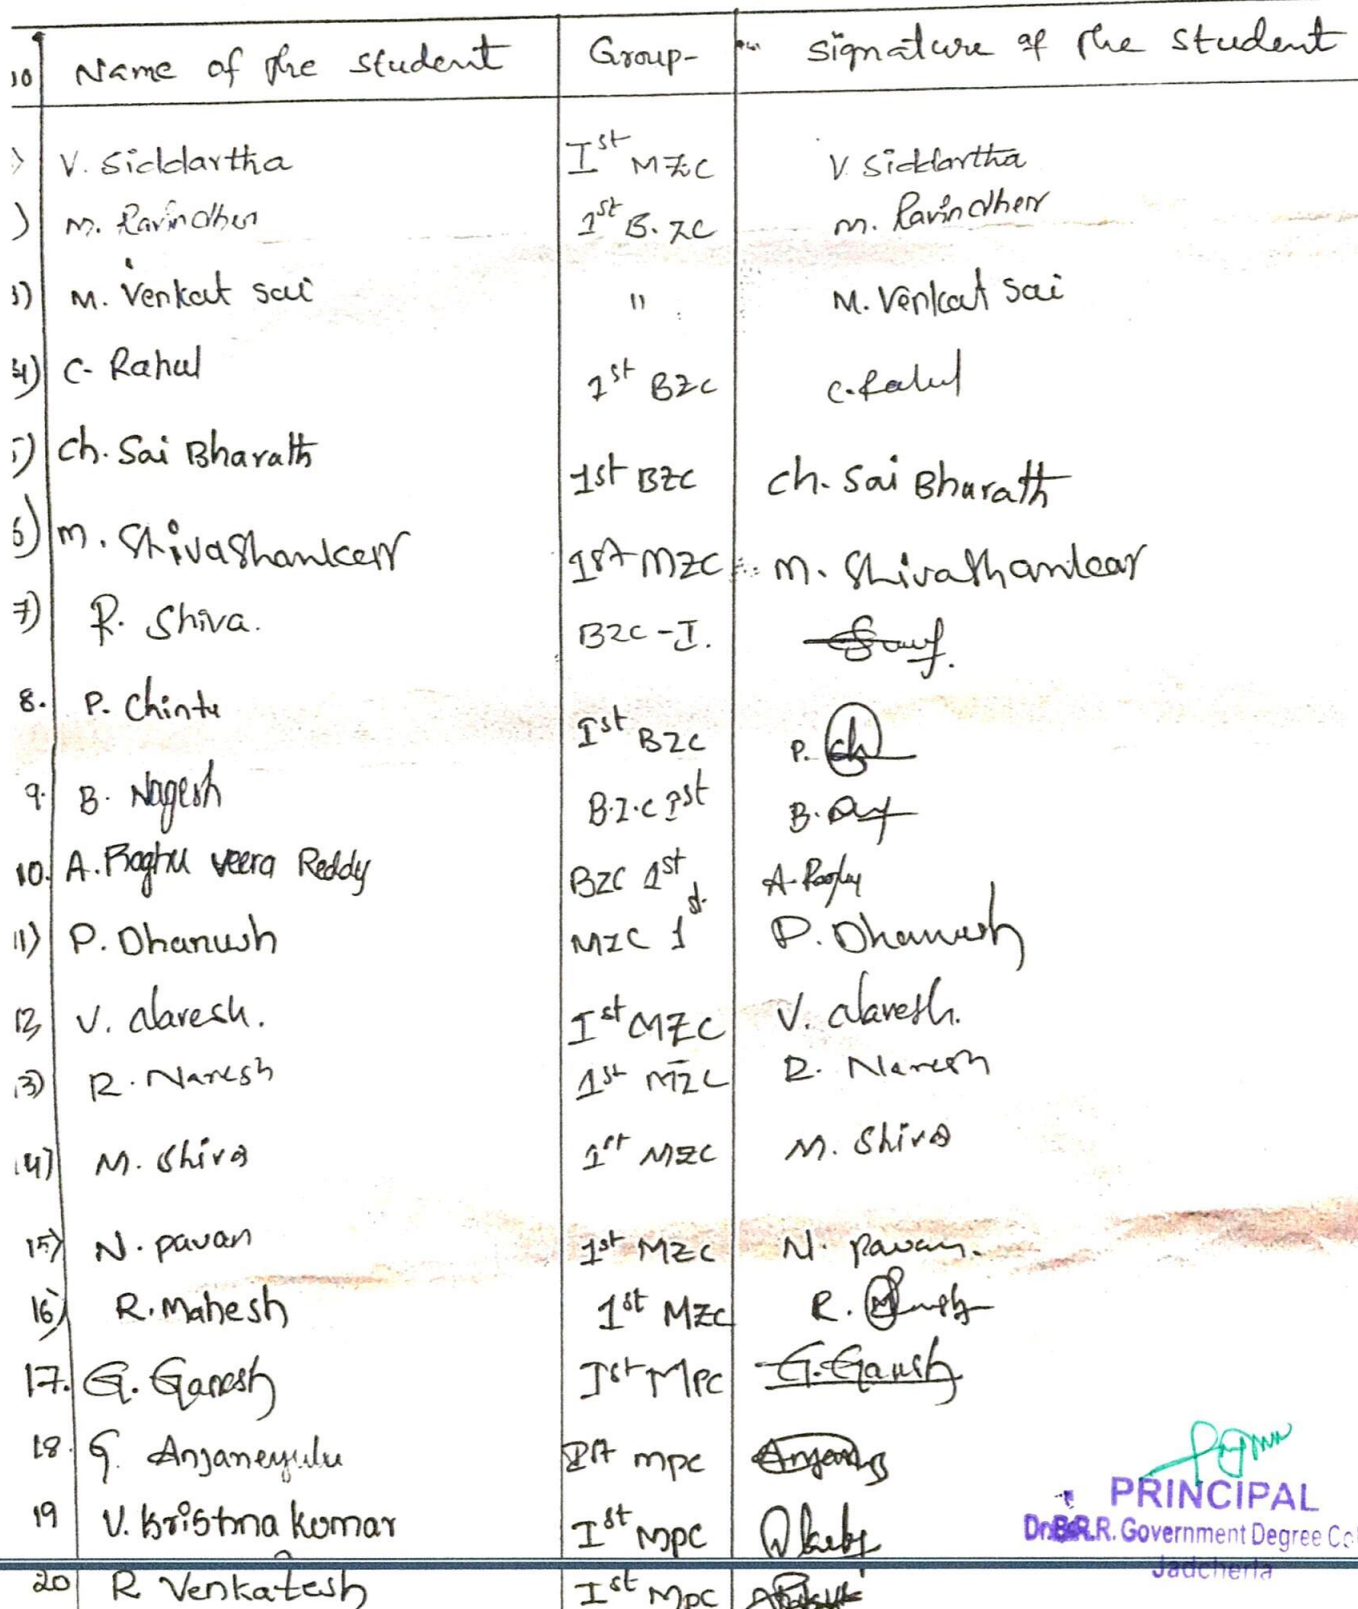 no Name of the student Group- Signature of the student
) V. Siddartha Ist MZC V. Siddartha
) M. Ravindher 1st B.ZC M. Ravindher
3) M. Venkat Sai " M. Venkat Sai
4) C. Rahul 1st BZC C. Rahul
5) Ch. Sai Bharath 1st BZC Ch. Sai Bharath
6) M. ShivaShanker 1st MZC M. ShivaShankar
7) R. Shiva. BZC-I.
8. P. Chintu Ist BZC P. Ch
9. B. Nagesh B.Z.C Ist B.
10. A. Raghu veera Reddy BZC 1st A. Raghu
11) P. Dhanush MZC 1st P. Dhanush
12) V. Naresh. Ist MZC V. Naresh.
13) R. Naresh 1st MZC R. Naresh
14) M. Shiva 1st MZC M. Shiva
15) N. pavan 1st MZC N. pavan.
16) R. Mahesh 1st MZC R.
17. G. Ganesh Ist MPC G. Ganesh
18. G. Anjaneyulu Ist mpc
19 V. Kristna kumar Ist Mpc
PRINCIPAL
Dr.B.R.R. Government Degree Co
Jadcherla
20 R Venkatesh Ist Mpc